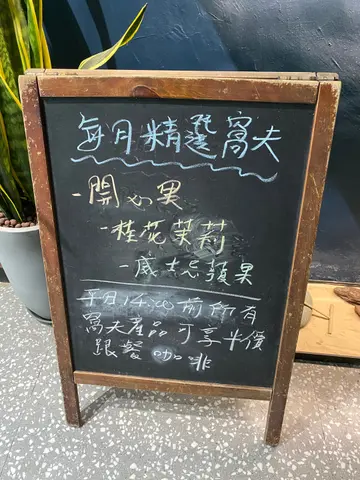 每月精選窩夫
-開心果
-桂花茉莉
-威士忌蘋果
平日14:00前所有
窩夫產品可享半價
跟餐咖啡